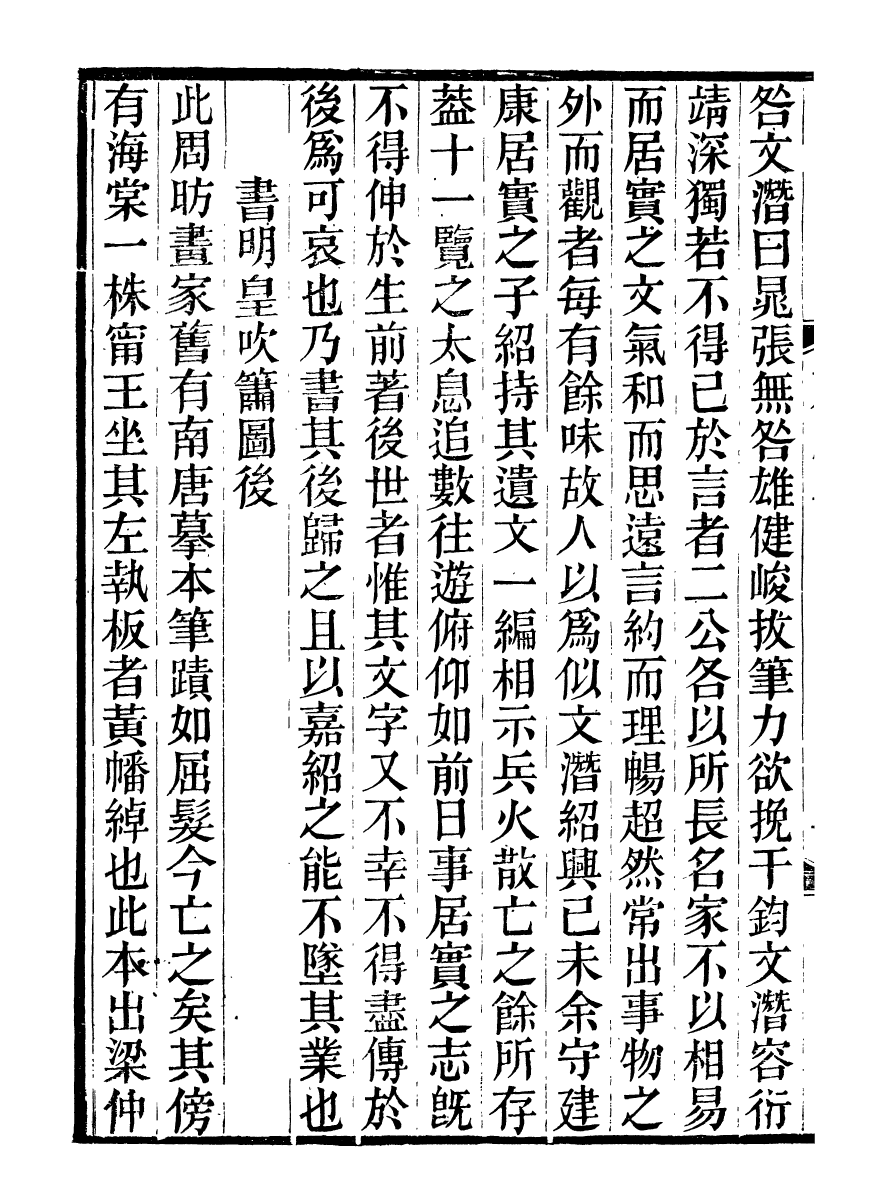 咎文潛曰晁張無咎雄健峻拔筆力欲挽千鈞文潛容衍
靖深獨若不得已於言者二公各以所長名家不以相易
而居實之文氣和而思遠言約而理暢超然常出事物之
外而觀者每有餘味故人以爲似文潛紹興己未余守建
康居實之子紹持其遺文一編相示兵火散亡之餘所存
葢十一覽之太息追數往遊俯仰如前日事居實之志旣
不得伸於生前著後世者惟其文字又不幸不得盡傳於
後爲可哀也乃書其後歸之且以嘉紹之能不墜其業也
書明皇吹簫圖後
此周昉畫家舊有南唐摹本筆蹟如屈髮今亡之矣其傍
有海棠一株甯王坐其左執板者黃幡綽也此本出梁仲